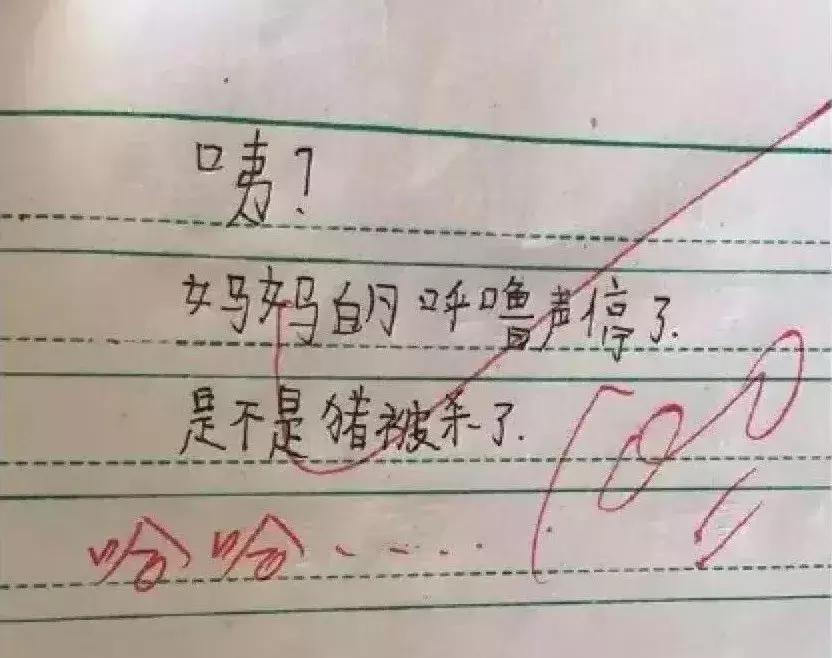 咦?
妈妈的呼噜声停了.
是不是猪被杀了.
哈哈......
100